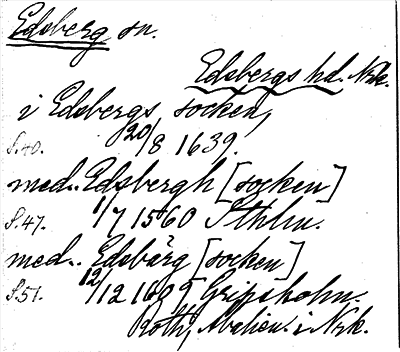 Edsberg sn.
Edsbergs hd. Nrk.
i Edsbergs socken,
S.40. 20/8 1639.
med.. Edsbergh [socken]
S.47. 1/7 1560 Sthlm.
med.. Edsbärg [socken]
S.51. 12/12 1609 Gripsholm.
Roth, i Nrk.